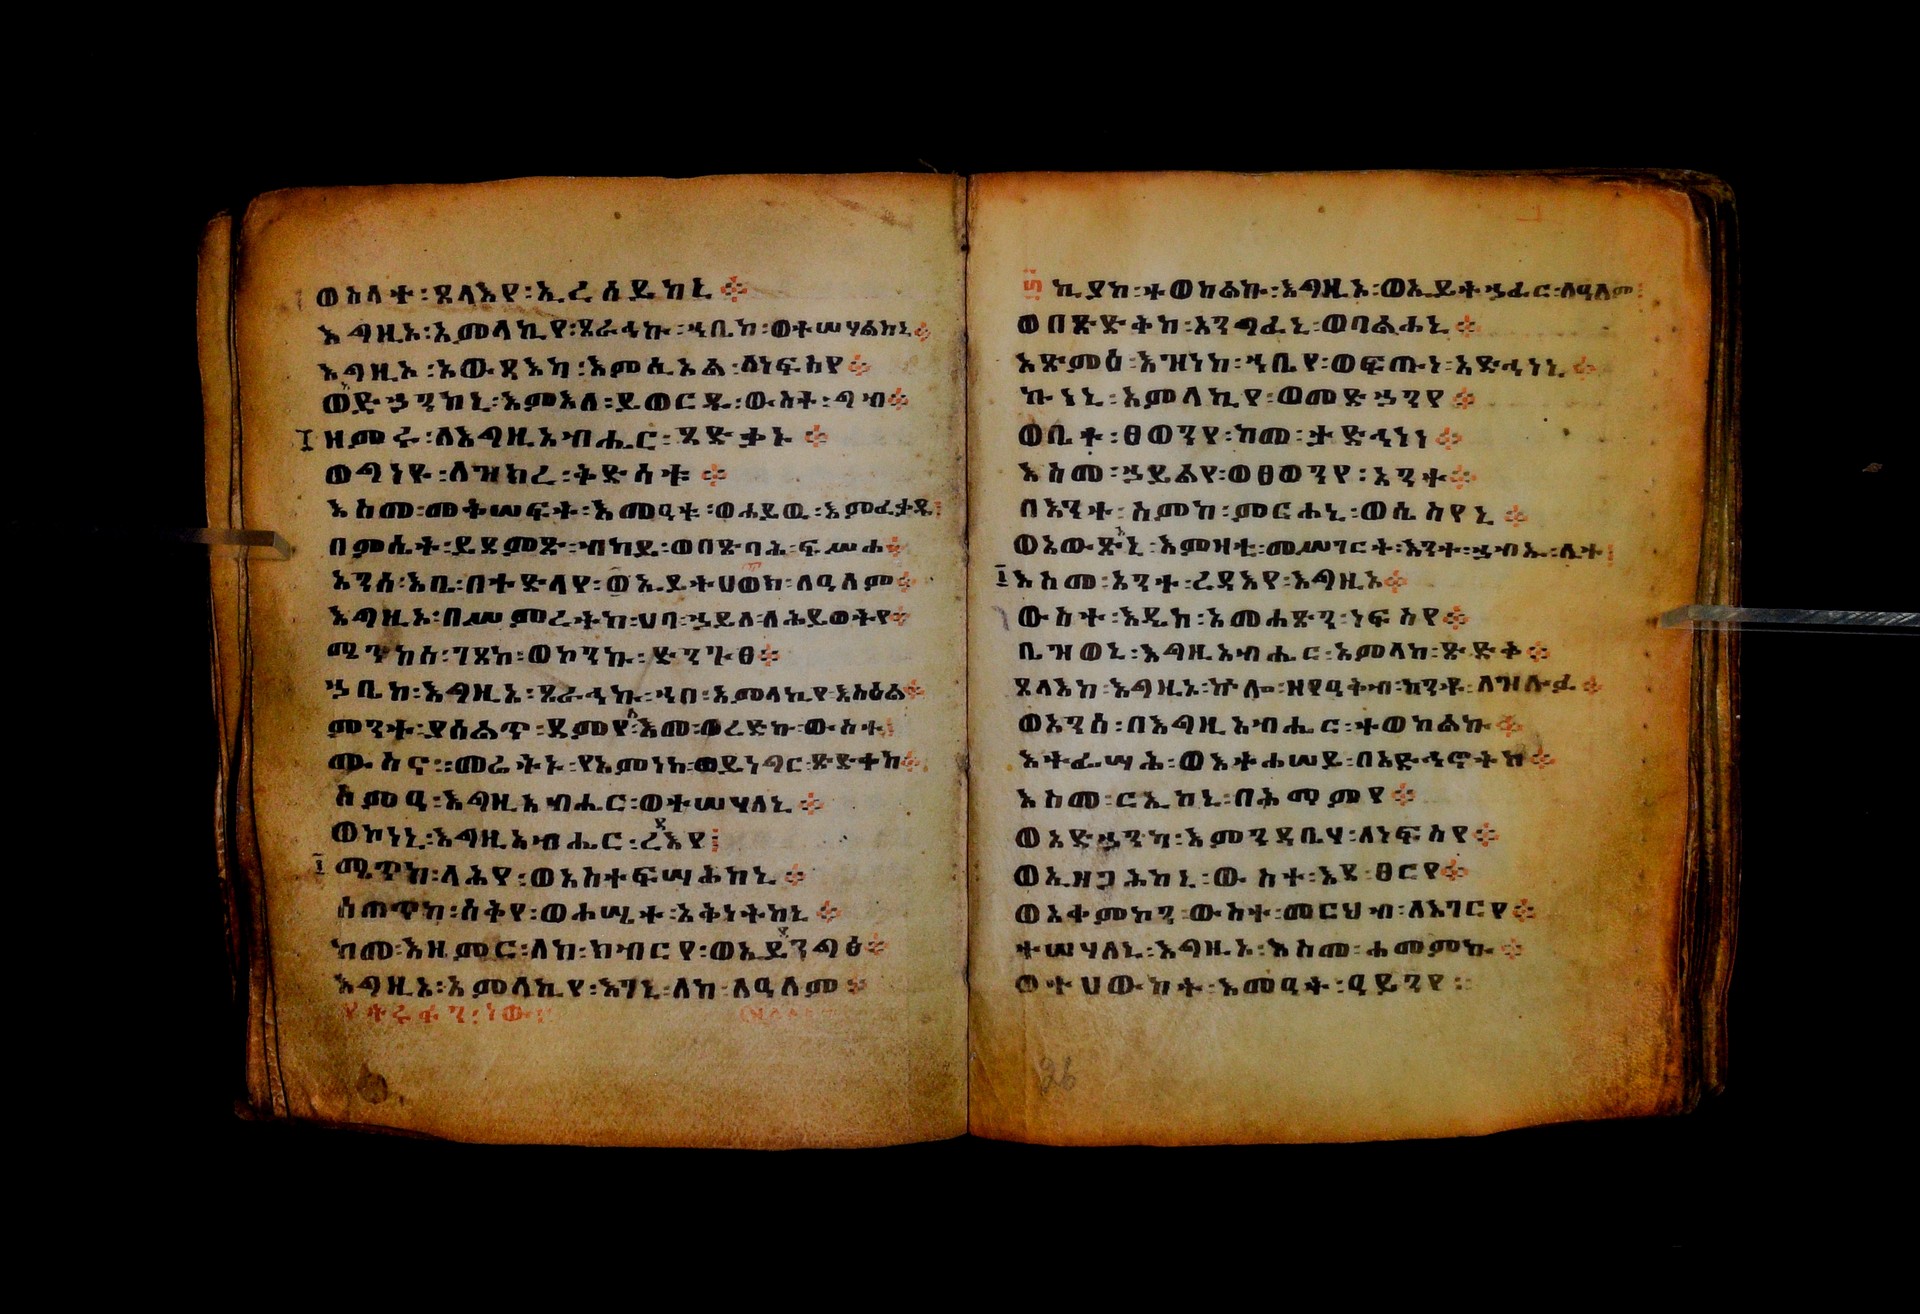 ወስላተ፡ጸላእየ፡ኢረሰይከኒ፨
እግዚኦ፡አምላኪየ፡ጸራኅኩ፡ኀቤከ፡ወተሠሃልከኒ፨
እግዚኦ፡አውጻእካ፡እምሲኦል፡ለነፍስየ፨
ወአድኀንከኒ፡እምእለ፡ይወርዱ፡ውስተ፡ግብ፨
ዘምሩ፡ለእግዚአብሔር፡ጻድቃኑ፨
ወግነዩ፡ለዝክረ፡ቅድሳቱ፨
እስመ፡መቅሠፍት፡እመዓቱ፡ወሐይው፡እምፈቃዱ፨
በምሴት፡ይደምፅ፡ብካይ፡ወበጽባሕ፡ፍሥሐ፨
አንሰ፡እቤ፡በተድላየ፡ወኢይትሀወክ፡ለዓለም፨
እግዚኦ፡በሥምረትከ፡ሀባ፡ኀይለ፡ለሕይወትየ፨
ሜጥከሰ፡ገጸከ፡ወኮንኩ፡ድንጉፀ፨
ኀቤከ፡እግዚኦ፡ጸራኅኩ፡ኀበ፡አምላኪየ፡አስዕል፨
ምንት፡ያሰልጥ፡ደምየ፡ለእመ፡ወረድኩ፡ውስተ፡
ሙስና፡መሬትኑ፡የአምነከ፡ወይነግር፡ጽድቀከ፨
ሰምዓ፡እግዚአብሔር፡ወተሠሃለኒ፨
ወኮነኒ፡እግዚአብሔር፡ረዳእየ፡
ሜጥከ፡ላሕየ፡ወአስተፍሣሕከኒ፨
ሰጠጥከ፡ሰቅየ፡ወሐሤተ፡አቅነትከኒ፨
ከመ፡እዘምር፡ለከ፡ክብርየ፡ወኢይደንግፅ፨
እግዚኦ፡አምላኪየ፡እገኒ፡ለከ፡ለዓለም፨
ኪያከ፡ተወከልኩ፡እግዚኦ፡ወኢይትኀፈር፡ለዓለም፡
ወበጽድቅከ፡አንግፈኒ፡ወባልሐኒ፨
አጽምዕ፡እዝነከ፡ኀቤየ፡ወፍጡነ፡አድኅነኒ፨
ኩነኒ፡አምላኪየ፡ወመድኀንየ፨
ወቤተ፡ፀወንየ፡ከመ፡ታድኅነኒ፨
እስመ፡ኀይልየ፡ወፀወንየ፡አንተ፨
በእንተ፡ስምከ፡ምርሐኒ፡ወሴስየኒ፨
ወአውጽአኒ፡እምዛቲ፡መሥገርት፡እንተ፡ኀብኡ፡ሊተ፡
እስመ፡አንተ፡ረዳእየ፡እግዚኦ፨
ውስተ፡እዴከ፡አመሐፅን፡ነፍስየ፨
ቤዝወኒ፡እግዚአብሔር፡አምላከ፡ጽድቅ፨
ጸላእከ፡እግዚኦ፡ኵሎ፡ዘየዓቅብ፡ከንቶ፡ለዝሉፉ፨
ወአንሰ፡በእግዚአብሔር፡ተወከልኩ፨
እትፌሣሕ፡ወእትሐሠይ፡በአድኅኖትከ፨
እስመ፡ርኢከኒ፡በሕማምየ፨
ወአድኀንካ፡እምንዳቤሃ፡ለነፍስየ፨
ወኢዘጋሕከኒ፡ውስተ፡እደ፡ፀርየ፨
ወአቀምከን፡ውስተ፡መርህብ፡ለእገርየ፨
ተሠሃለኒ፡እግዚኦ፡እስመ፡ሐመምኩ፨
ወተሀውከት፡እመዓት፡ዓይንየ፡፡